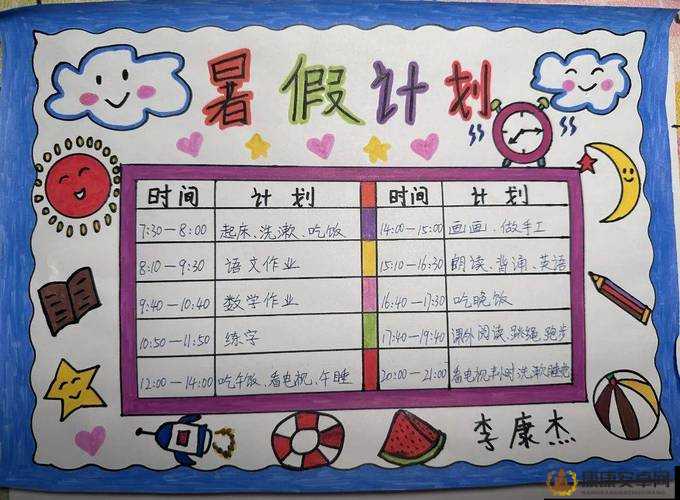 暑假计划
时间 计划 时间 计划
7:30—8:00 起床、洗漱、吃饭 14:00—15:00 画画、做手工
8:10—9:30 语文作业 15:10—16:30 朗读、背诵、英语
9:40—10:40 数学作业 16:40—17:30 吃晚饭
10:50—11:50 练字 17:40—19:40 课外阅读、跳绳、跑步
12:00—14:00 吃午饭、看电视、午睡 20:00—21:00 看电视半小时洗漱睡觉
李康杰